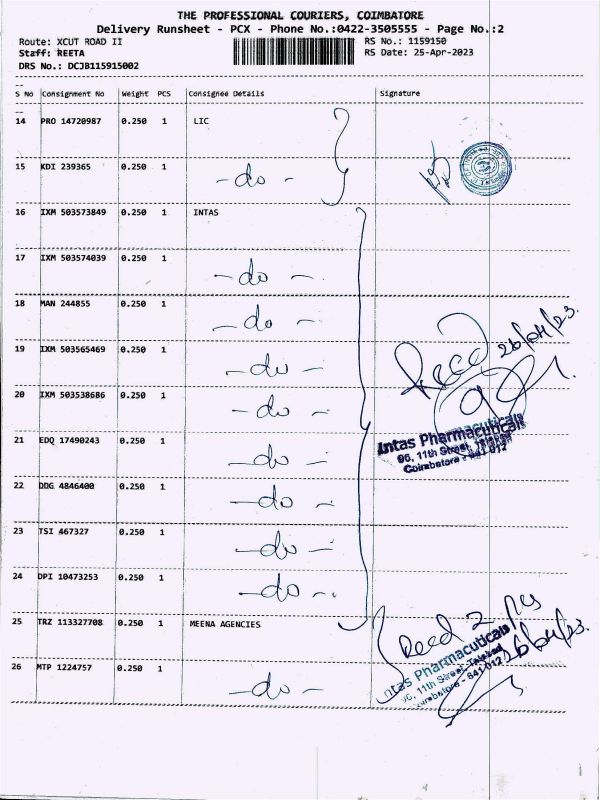 THE PROFESSIONAL COURIERS, COIMBATORE
Delivery Runsheet - PCX - Phone No.:0422-3505555 - Page No.:2
Route: XCUT ROAD II RS No.: 1159150
Staff: REETA RS Date: 25-Apr-2023
DRS No.: DCJB115915002
S No Consignment No Weight PCS Consignee Details Signature
14 PRO 14720987 0.250 1 LIC
15 KDI 239365 0.250 1 -do-
16 IXM 503573849 0.250 1 INTAS
17 IXM 503574039 0.250 1 -do-
18 MAN 244855 0.250 1 -do-
19 IXM 503565469 0.250 1 -do-
20 IXM 503538686 0.250 1 -do-
21 EDQ 17490243 0.250 1 -do-
22 DDG 4846400 0.250 1 -do-
23 TSI 467327 0.250 1 -do-
24 DPI 10473253 0.250 1 -do-
25 TRZ 113327708 0.250 1 MEENA AGENCIES
26 MTP 1224757 0.250 1 -do-
Recd 26/04/23.
Intas Pharmacuticals
96, 11th Street, Tatabad
Coimbatore - 641 012
Recd 2 Pcs
26/04/23.
Intas Pharmacuticals
96, 11th Street, Tatabad
Coimbatore - 641 012